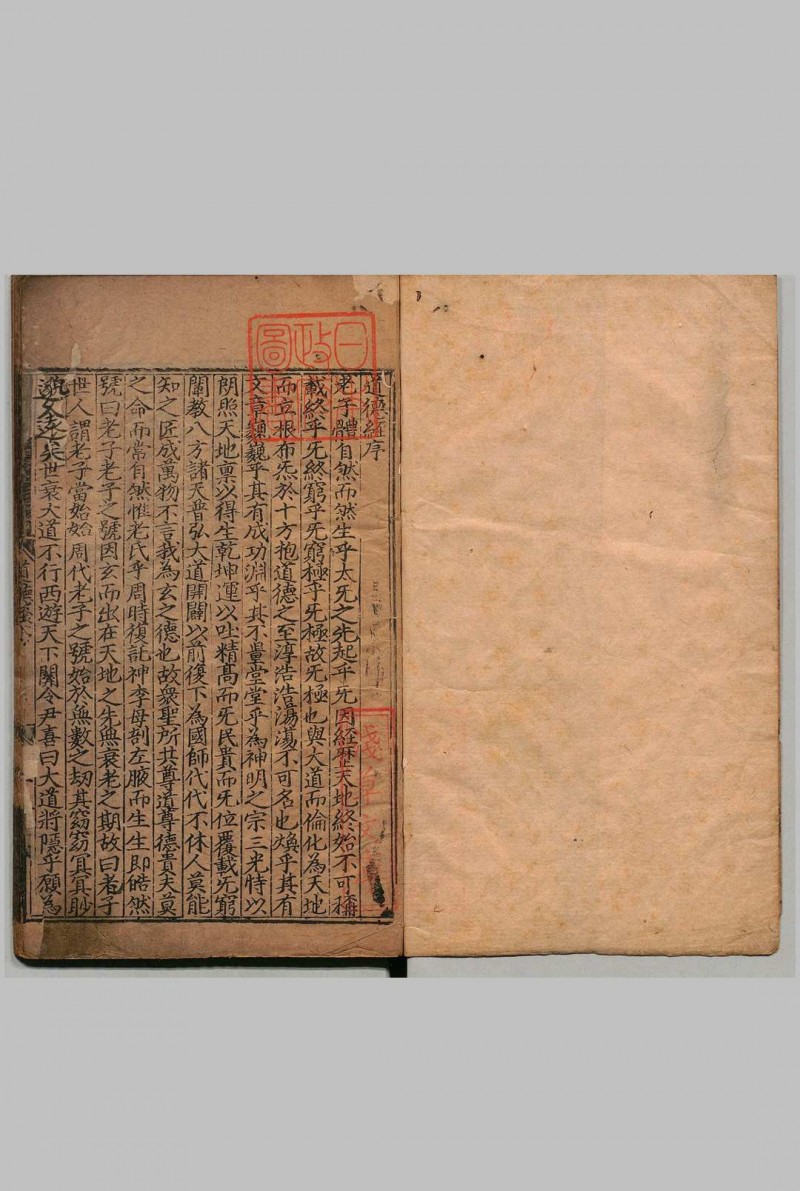 道德經序
老子體自然而然生乎太无之先起乎无因經歷天地終始不可稱
載終乎无終窮乎无窮極乎无極故无極也與大道而倫化為天地
而立根布炁於十方抱道德之至淳浩浩蕩蕩不可名也煥乎其有
文章巍巍乎其有成功淵乎其不量堂堂乎為神明之宗三光恃以
朗照天地禀以得生乾坤運以吐精髙而无民貴而无位覆載无窮
闡教八方諸天普弘大道開闢以前復下為國師代代不休人莫能
知之匠成萬物不言我為玄之德也故衆聖所共尊道尊德貴夫莫
之命而常自然惟老氏乎周時複託神李母剖左腋而生生即皓然
號曰老子老子之號因玄而出在天地之先無衰老之期故曰老子
世人謂老子當始始周代老子之號始於無數之劫其窈窈冥冥眇
邈久逺矣世衰大道不行西遊天下關令尹喜曰大道將隱乎願為
道德經